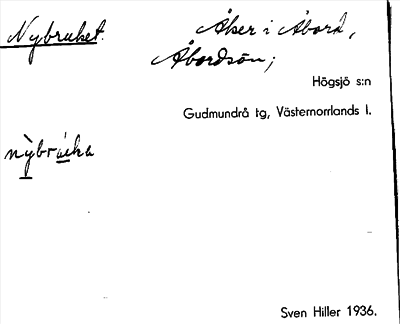 Nybruket.
Åker i Åbord,
Åbordsön;
Högsjö s:n
Gudmundrå tg, Västernorrlands l.
Sven Hiller 1936.